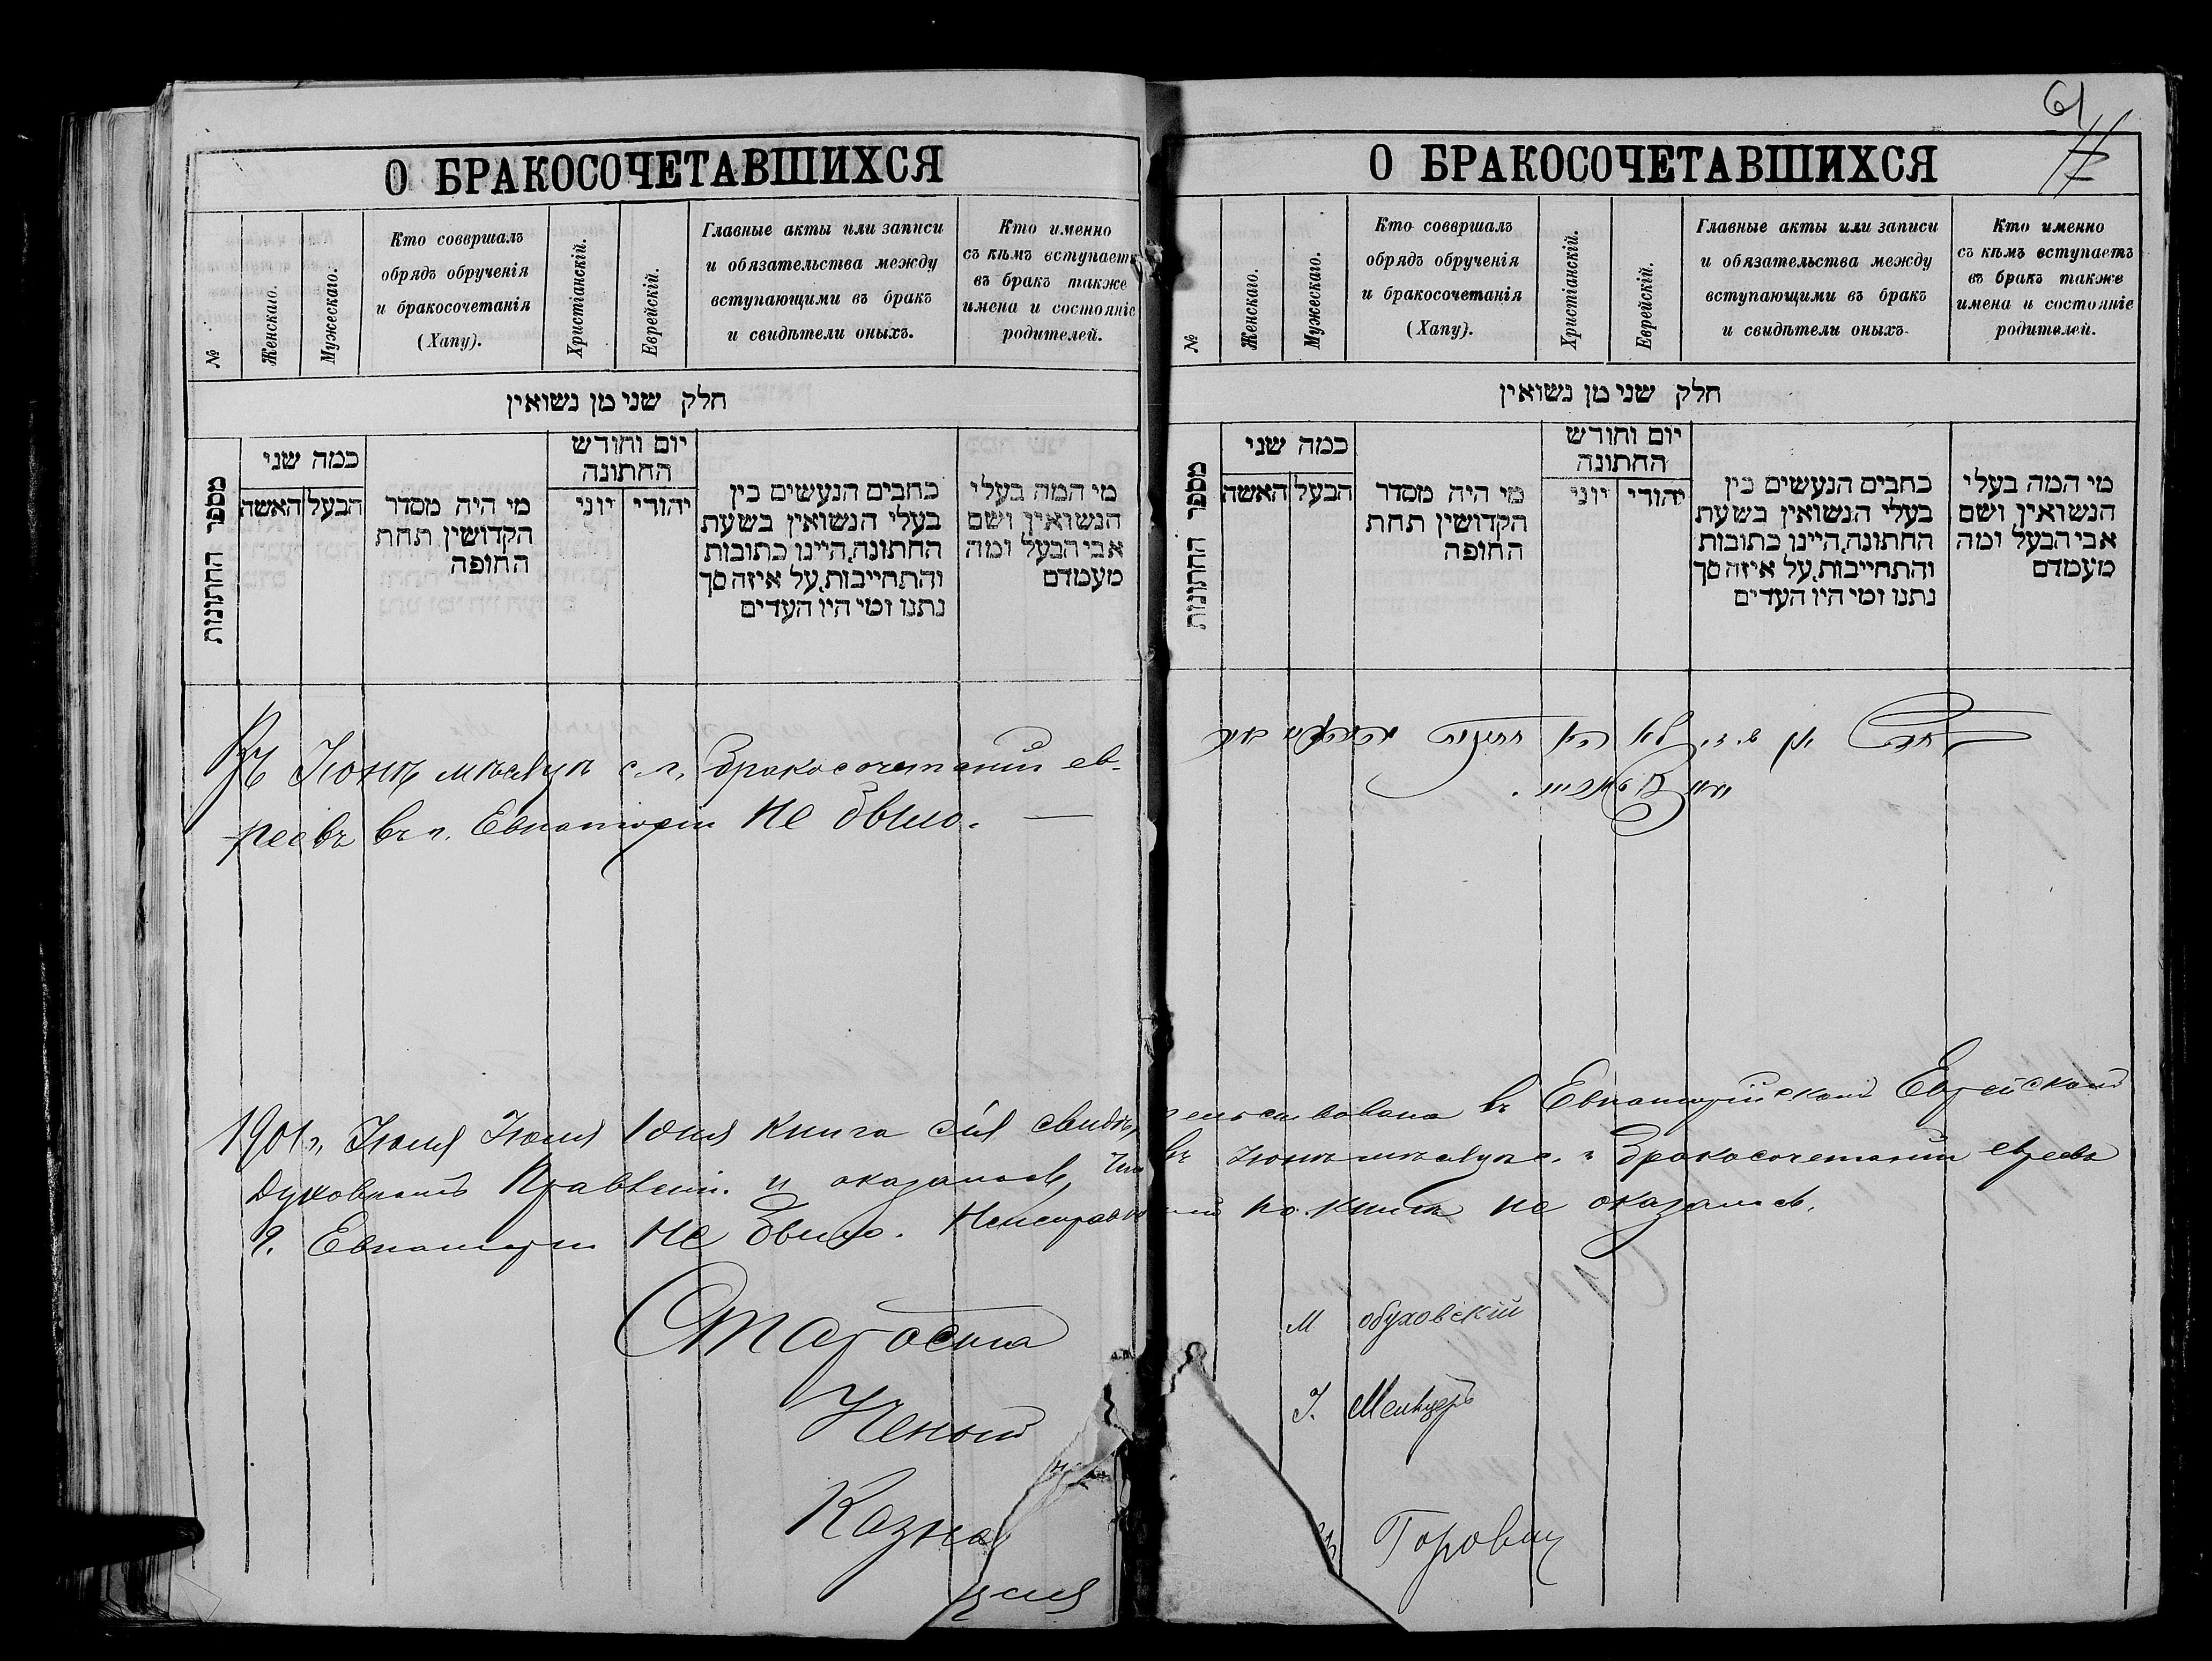 61
О БРАКОСОЧЕТАВШИХСЯ
№
Женскаго.
Мужескаго.
Кто совершалъ
обрядъ обрученія
и бракосочетанія
(Хапу).
Христіанскій.
Еврейскій.
Главные акты или записи
и обязательства между
вступающими въ бракъ
и свидѣтели оныхъ.
Кто именно
съ кѣмъ вступаетъ
въ бракъ также
имена и состояніе
родителей.
חלק שני מן נשואין
מספר החתונות
כמה שני
האשה
הבעל
מי היה מסדר
הקדושין תחת
החופה
יום וחודש
החתונה
יוני
יהודי
כתבים הנעשים בין
בעלי הנשואין בשעת
החתונה,היינו כתובות
והתחייבות,על איזה סך
נתנו ומי היו העדים
מי המה בעלי
הנשואין ושם
אבי הבעל ומה
מעמדם
Въ Іюнѣ мѣсяцѣ с.г. бракосочетаній ев-
реевъ въ г. Евпаторіи не было. —
О БРАКОСОЧЕТАВШИХСЯ
№
Женскаго.
Мужескаго.
Кто совершалъ
обрядъ обрученія
и бракосочетанія
(Хапу).
Христіанскій.
Еврейскій.
Главные акты или записи
и обязательства между
вступающими въ бракъ
и свидѣтели оныхъ.
Кто именно
съ кѣмъ вступаетъ
въ бракъ также
имена и состояніе
родителей.
חלק שני מן נשואין
מספר החתונות
כמה שני
האשה
הבעל
מי היה מסדר
הקדושין תחת
החופה
יום וחודש
החתונה
יוני
יהודי
כתבים הנעשים בין
בעלי הנשואין בשעת
החתונה,היינו כתובות
והתחייבות,על איזה סך
נתנו ומי היו העדים
מי המה בעלי
הנשואין ושם
אבי הבעל ומה
מעמדם
1901 г. Іюля Іюля 1 дня книга сія свидѣтельствована въ Евпаторійскомъ Еврейскомъ
Духовномъ Правленіи и оказалось, что въ Іюнѣ мѣсяцѣ с. г. бракосочетаній евреевъ
г. Евпаторіи не было. Неисправностей по книгѣ не оказалось.
Староста М Обуховскій
Ученый І. Менцеръ
Казна
Горовиц